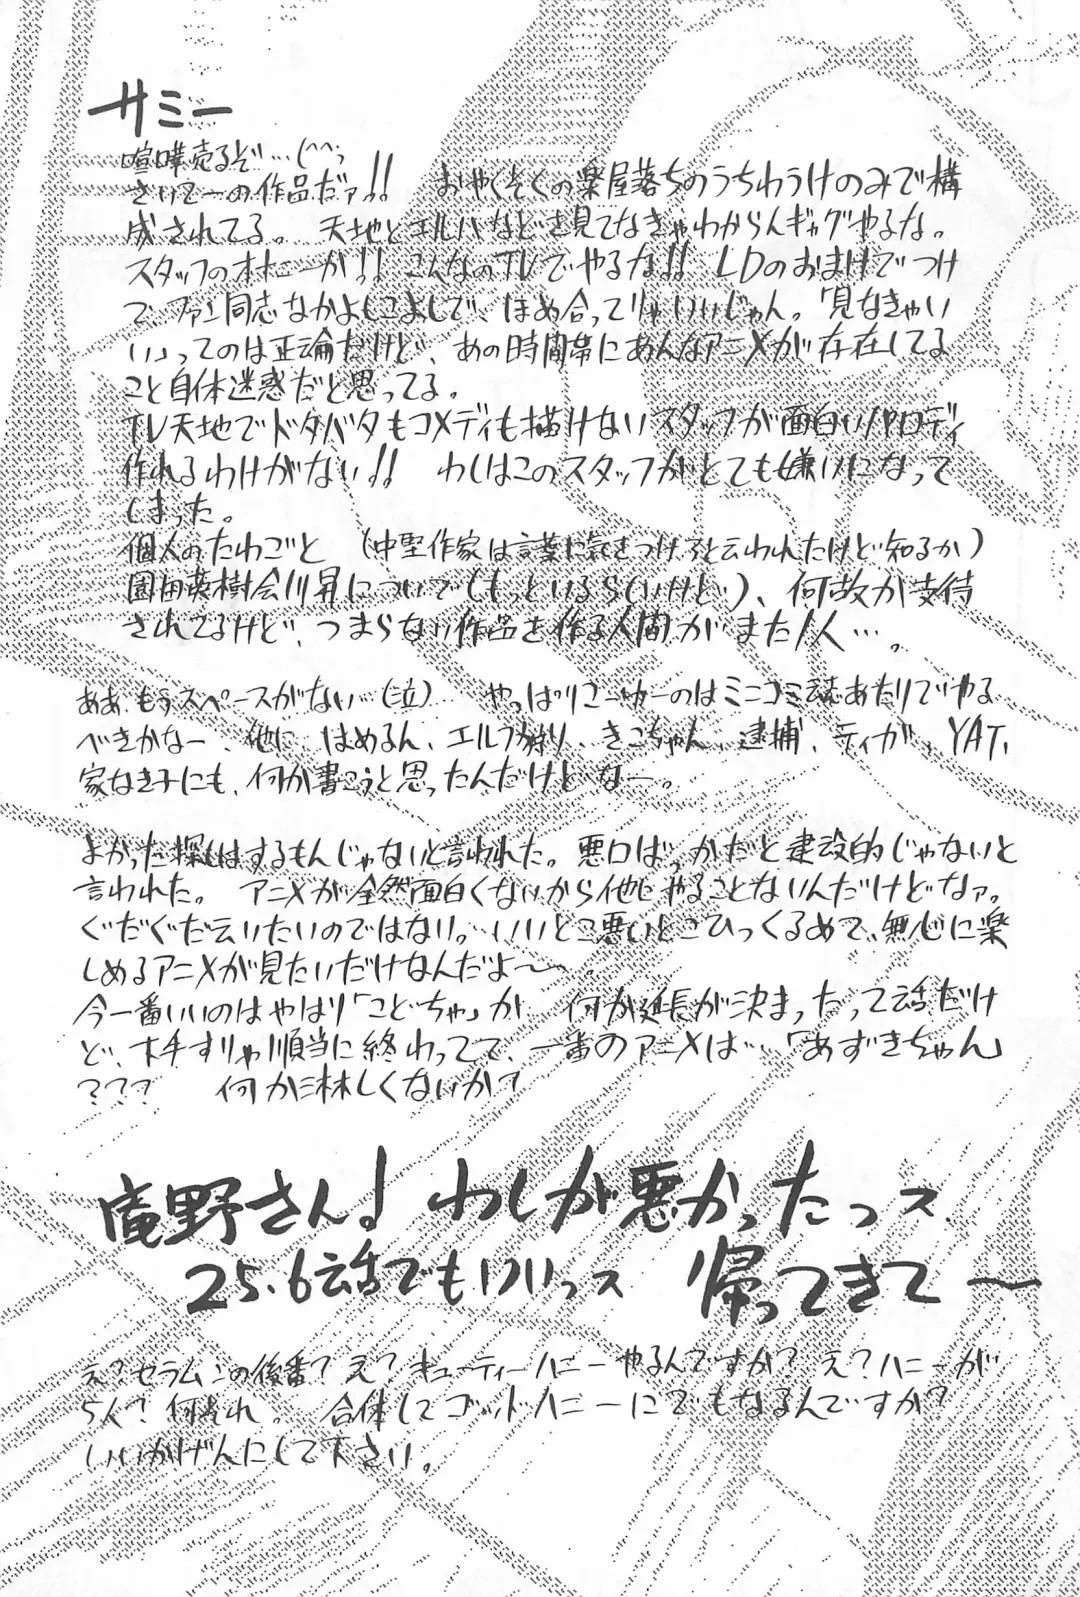 サミー
喧嘩売るぞ…(^^;
さいてーの作品だァ!! おやくそくの楽屋落ちのうちわうけのみで構
成されてる。 天地とエルハなどを見てなきゃわからんギャグやるな。
スタッフのオナニーか!! こんなのTVでやるな!! LDのおまけでつけ
で ファン同志なかよしこよしで、ほめ合ってりゃいいじゃん。「見なきゃい
い」ってのは正論だけど、あの時間帯にあんなアニメが存在してる
こと自体迷惑だと思ってる。
TV天地でドタバタもコメディも描けないスタッフが面白いパロディ
作れるわけがない!! わしはこのスタッフがとても嫌いになって
しまった。
個人のたわごと (中堅作家は言葉に気をつけろと云われたけど知るか)
園田英樹会川昇について(もっといるらしいけど)、何故か支持
されてるけど、つまらない作品を作る人間がまた1人…。
ああ、もうスペースがない…(泣) やっぱりこーゆーのはミニコミ誌あたりでやる
べきかなー、他に はめるん、エルフ狩り、きこちゃん、逮捕、ティガ、YAT、
家なき子にも、何か書こうと思ったんだけどなー。
よかった探しはするもんじゃないと言われた。悪口ばっかだと建設的じゃないと
言われた。 アニメが全然面白くないから他にやることないんだけどなァ。
ぐだぐだ云いたいのではない。…いいとこ悪いとこひっくるめて、無心に楽
しめるアニメが見たいだけなんだよ〜〜。
今一番いいのはやはり「こどちゃ」か 何か延長が決まったって話だけ
ど、木チすりゃ順当に終わってて、一番のアニメは…「あずきちゃん」
??? 何か淋しくないか?
庵野さん! わしが悪かったっス
25.6話でもいいっス 帰ってきて〜
え?セラムンの後番? え? キューティーハニーやるんですか? え?ハニーが
5人?何それ。 合体してゴッドハニーにでもなるんですか?
いいかげんにして下さい。